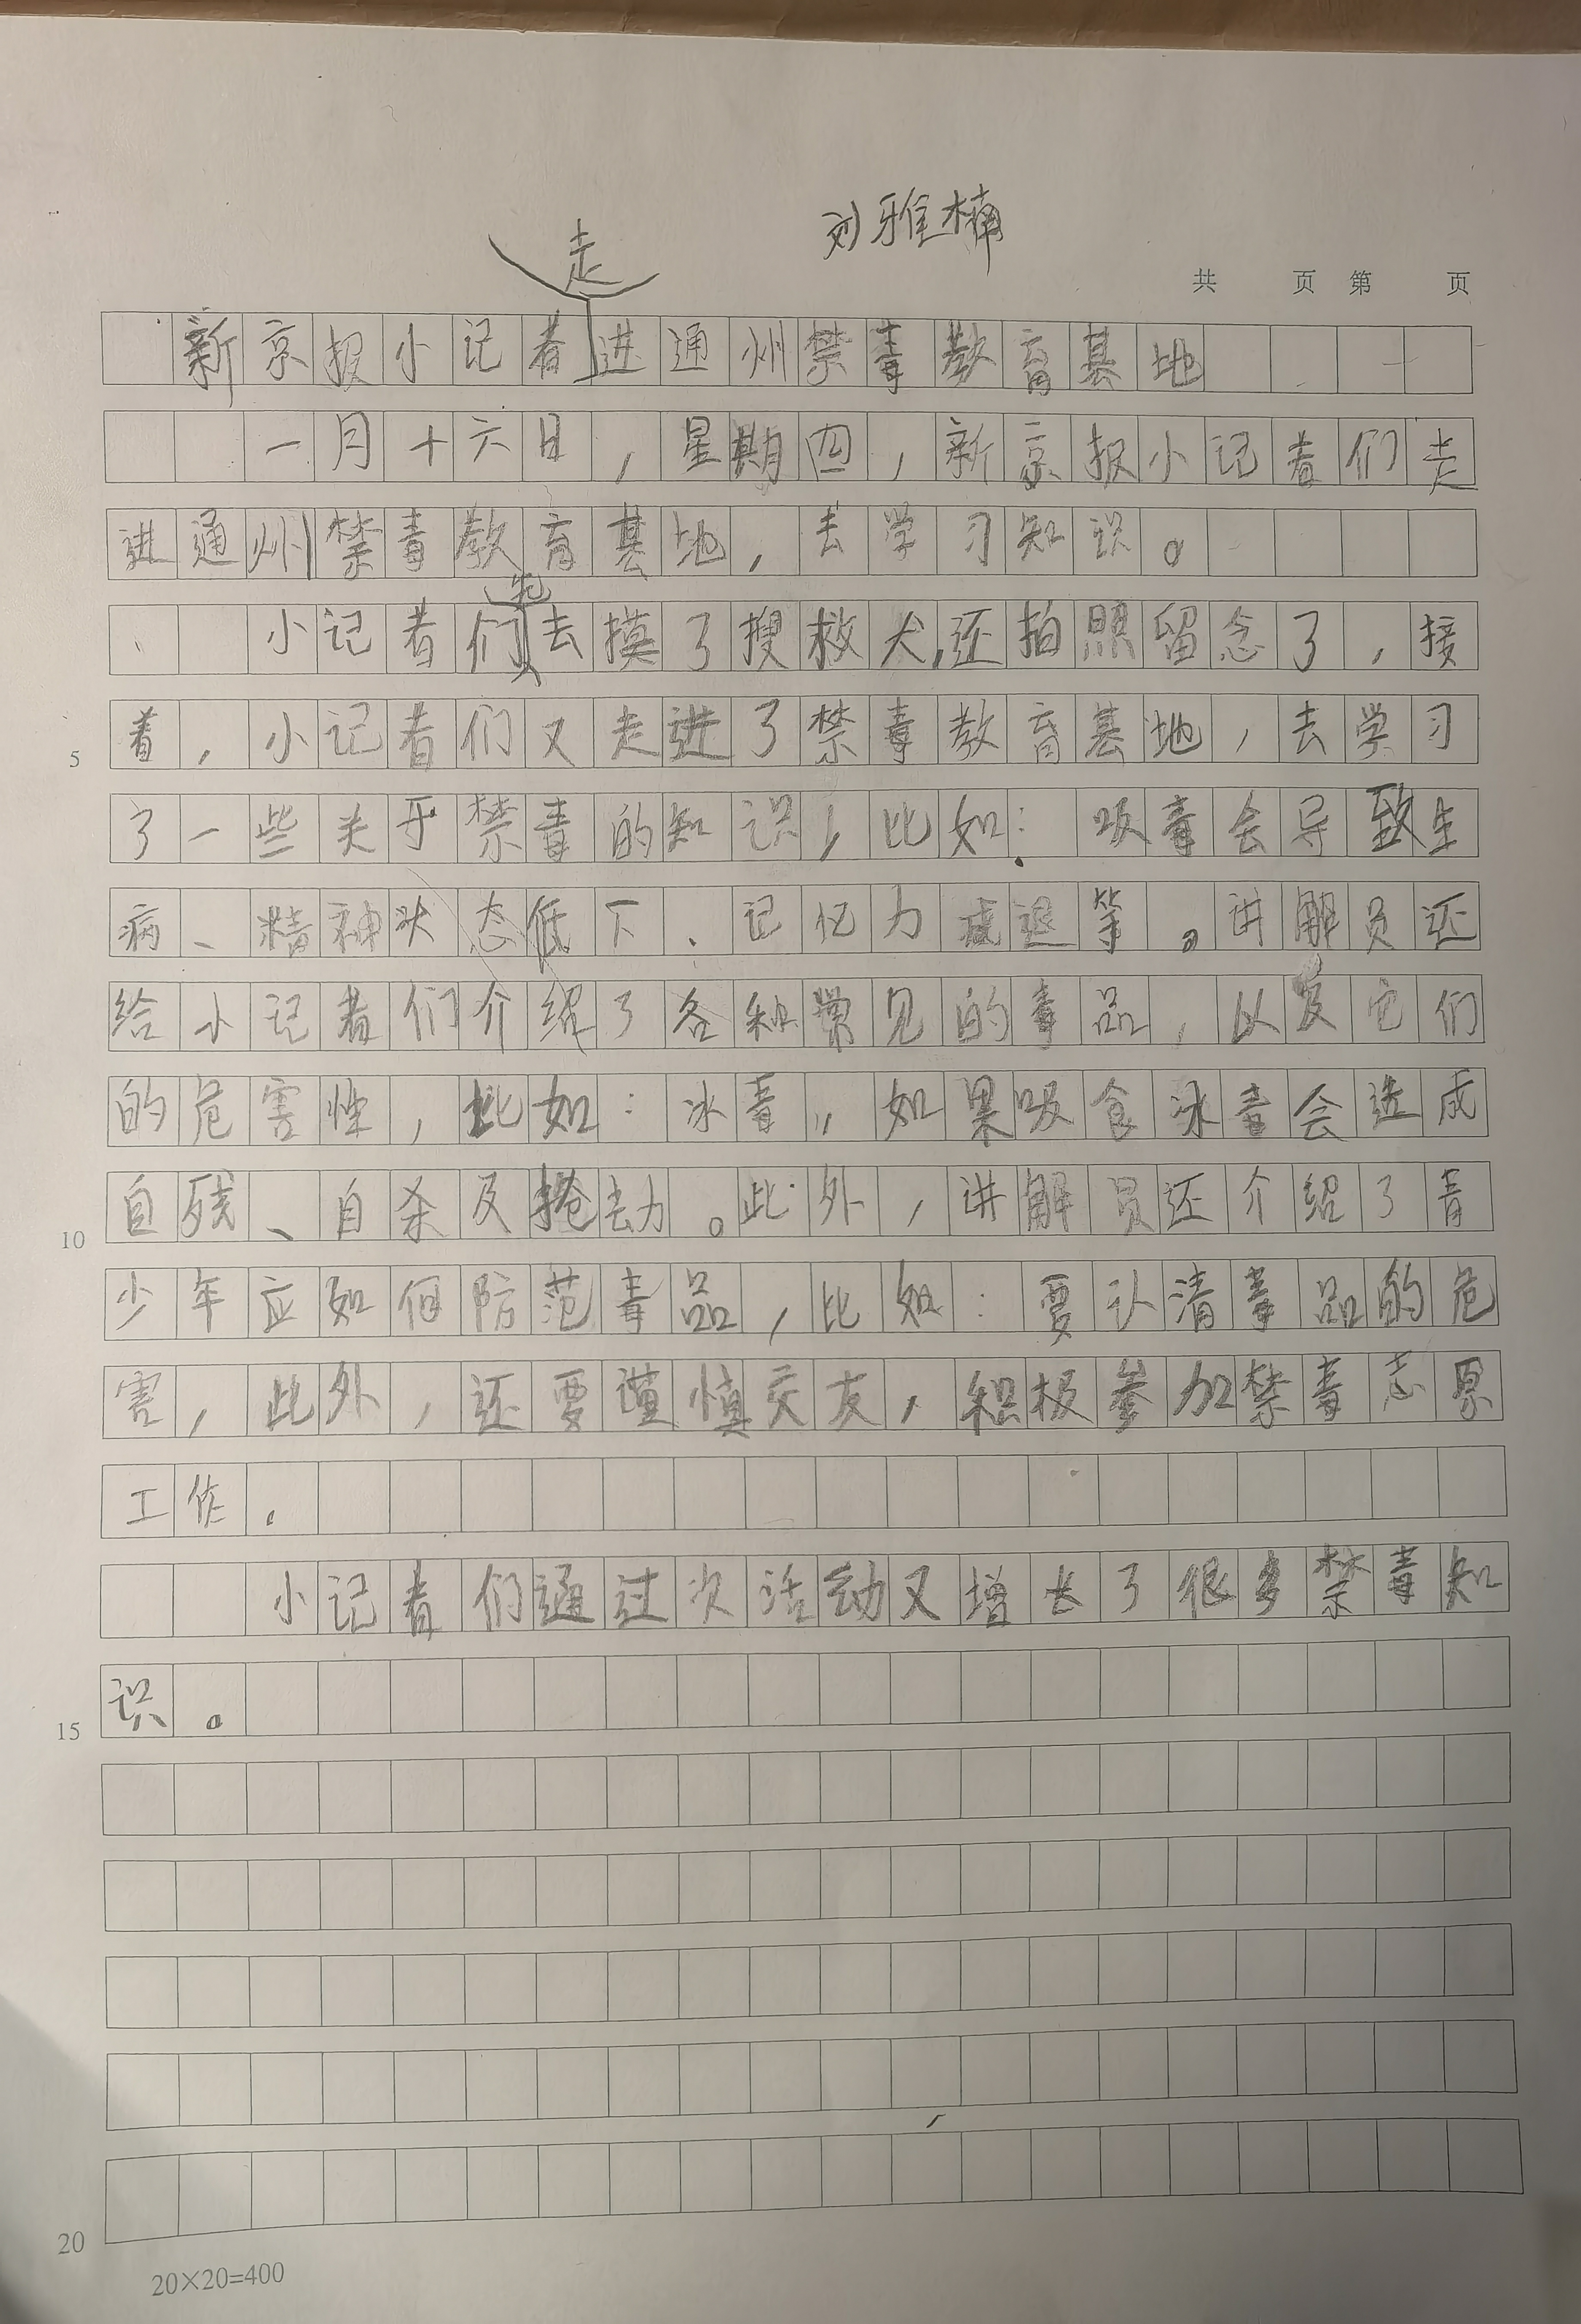 刘雅楠
共 页 第 页
新京报小记者走进通州禁毒教育基地
一月十六日，星期四，新京报小记者们走
进通州禁毒教育基地，去学习知识。
小记者们先去摸了搜救犬，还拍照留念了，接
着，小记者们又走进了禁毒教育基地，去学习
5
了一些关乎禁毒的知识，比如：吸毒会导致生
病、精神状态低下、记忆力减退等。讲解员还
给小记者们介绍了各种常见的毒品，以及它们
的危害性，比如：冰毒，如果吸食冰毒会造成
自残、自杀及掩劫。此外，讲解员还介绍了青
10
少年应如何防范毒品，比如：要认清毒品的危
害，此外，还要谨慎交友，积极参加禁毒志愿
工作。
小记者们通过次活动又增长了很多禁毒知
识。
15
20
20×20=400